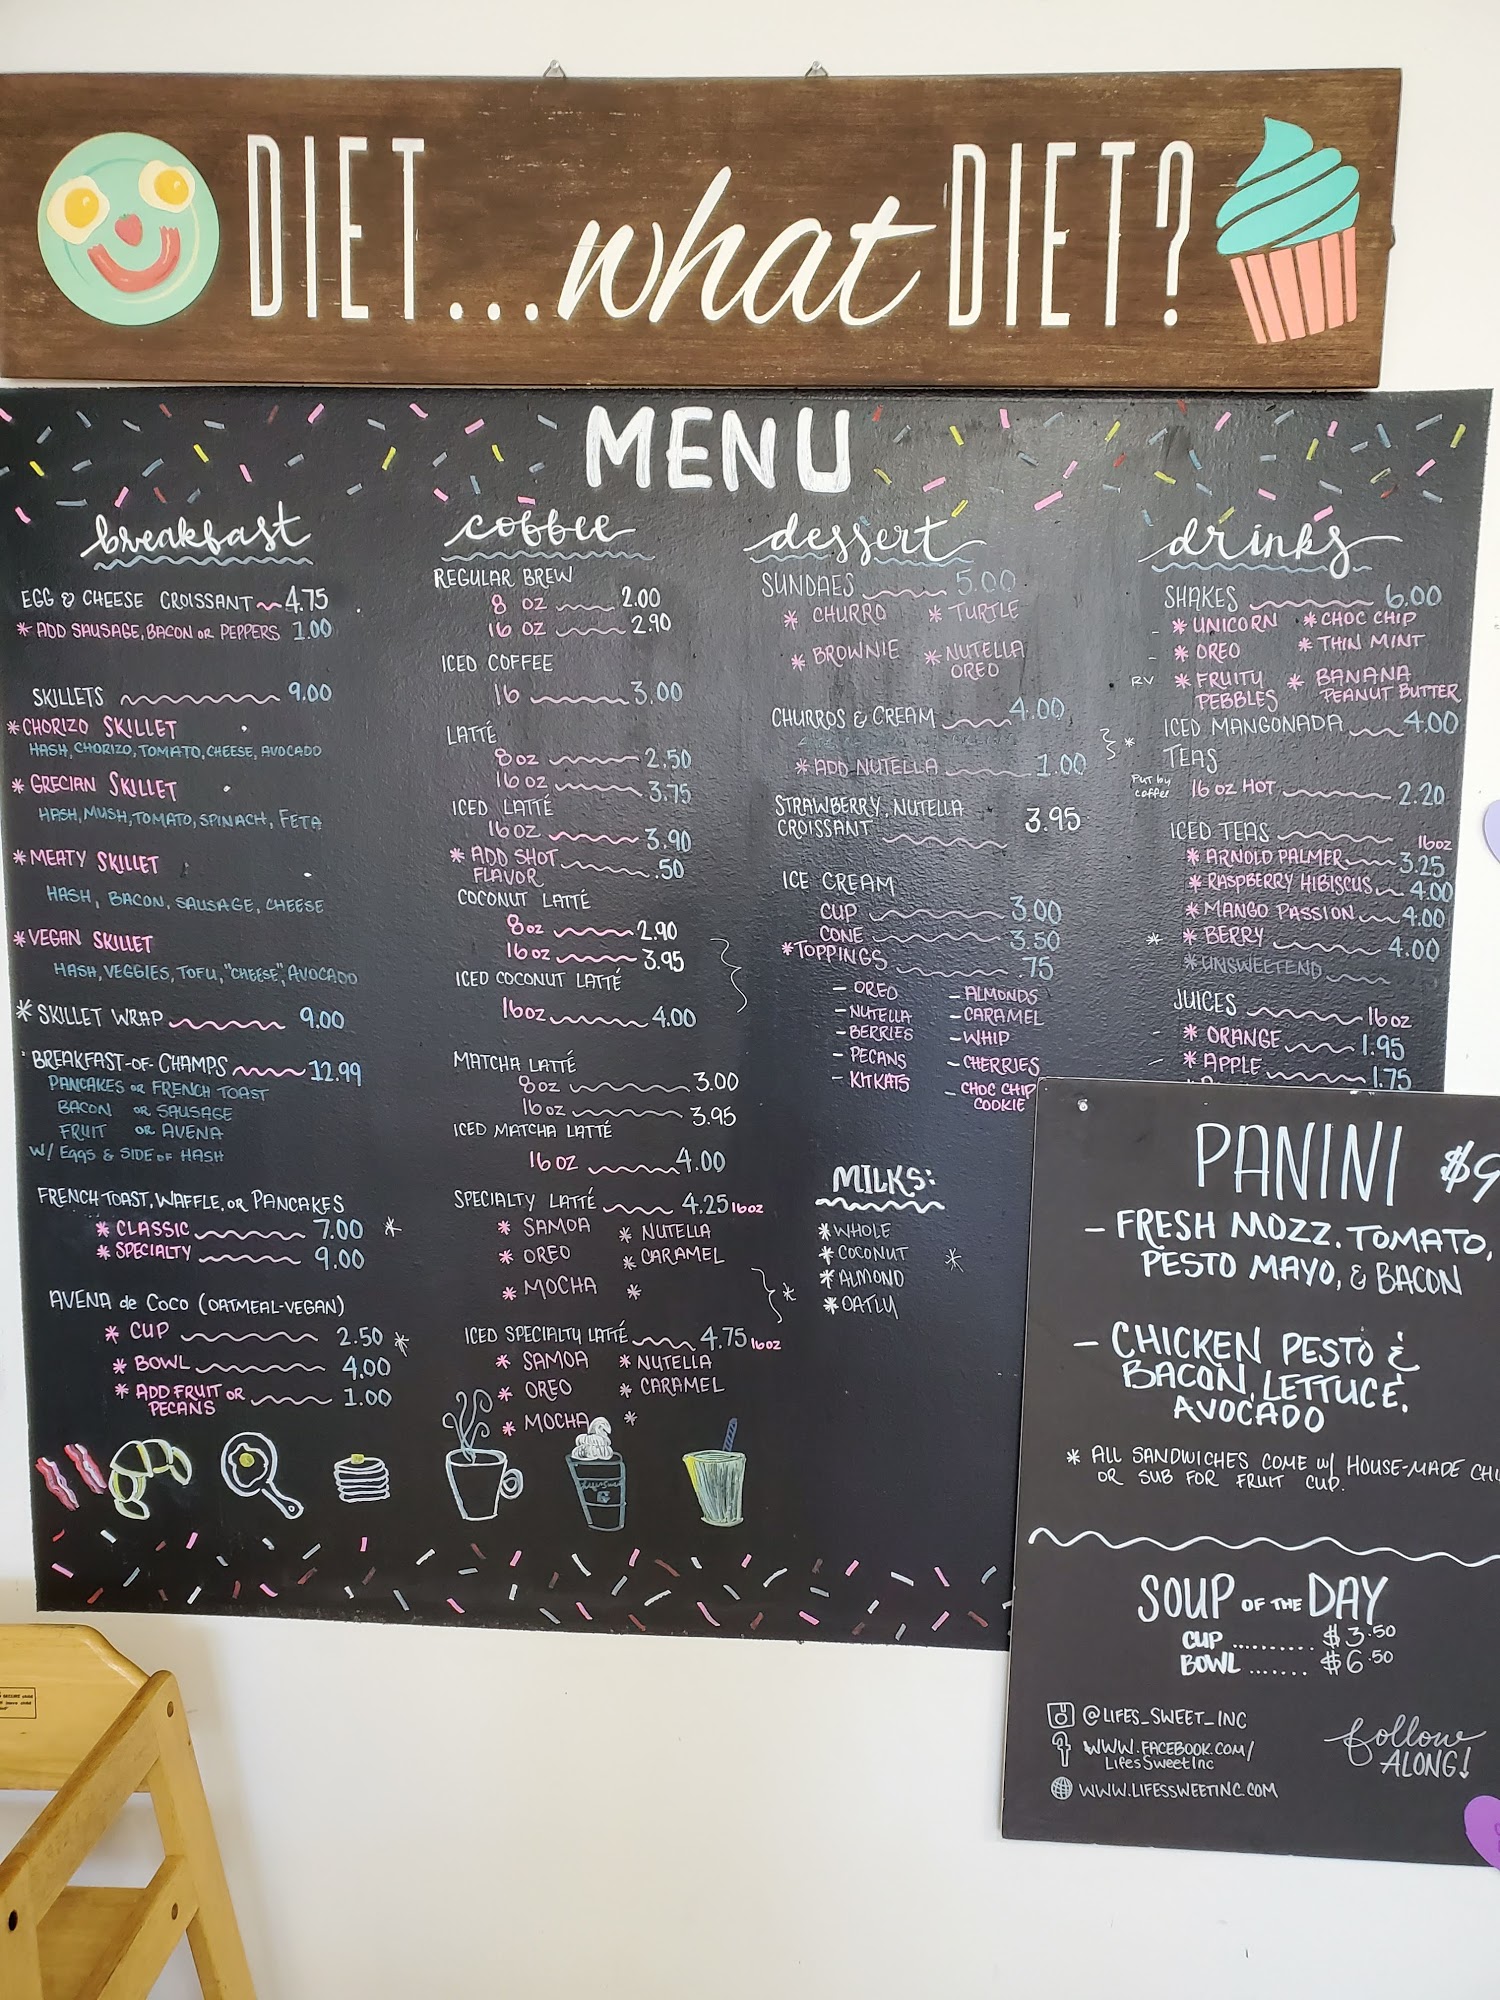 DIET...what DIET?
MENU
breakfast
EGG & CHEESE CROISSANT 4.75
* ADD SAUSAGE, BACON OR PEPPERS 1.00
SKILLETS 9.00
* CHORIZO SKILLET
HASH, CHORIZO, TOMATO, CHEESE, AVOCADO
* GRECIAN SKILLET
HASH, MUSH, TOMATO, SPINACH, FETA
* MEATY SKILLET
HASH, BACON, SAUSAGE, CHEESE
* VEGAN SKILLET
HASH, VEGGIES, TOFU, "CHEESE", AVOCADO
* SKILLET WRAP 9.00
BREAKFAST-OF-CHAMPS 12.99
PANCAKES OR FRENCH TOAST
BACON OR SAUSAGE
FRUIT OR AVENA
W/ EGGS & SIDE OF HASH
FRENCH TOAST, WAFFLE, OR PANCAKES
* CLASSIC 7.00 *
* SPECIALTY 9.00
AVENA de COCO (OATMEAL-VEGAN)
* CUP 2.50 *
* BOWL 4.00
* ADD FRUIT OR PECANS 1.00
coffee
REGULAR BREW
8 OZ 2.00
16 OZ 2.90
ICED COFFEE
16 3.00
LATTÉ
8 OZ 2.50
16 OZ 3.75
ICED LATTÉ
16 OZ 3.90
* ADD SHOT FLAVOR .50
COCONUT LATTÉ
8 OZ 2.90
16 OZ 3.95
ICED COCONUT LATTÉ
16 OZ 4.00
MATCHA LATTÉ
8 OZ 3.00
16 OZ 3.95
ICED MATCHA LATTÉ
16 OZ 4.00
SPECIALTY LATTÉ 4.25 16oz
* SAMOA * NUTELLA
* OREO * CARAMEL
* MOCHA *
ICED SPECIALTY LATTÉ 4.75 16oz
* SAMOA * NUTELLA
* OREO * CARAMEL
* MOCHA *
dessert
SUNDAES 5.00
* CHURRO * TURTLE
* BROWNIE * NUTELLA OREO
CHURROS & CREAM 4.00
* ADD NUTELLA 1.00
STRAWBERRY, NUTELLA
CROISSANT 3.95
ICE CREAM
CUP 3.00
CONE 3.50
* TOPPINGS .75
- OREO - ALMONDS
- NUTELLA - CARAMEL
- BERRIES - WHIP
- PECANS - CHERRIES
- KITKATS - CHOC CHIP COOKIE
MILKS:
* WHOLE
* COCONUT *
* ALMOND
* OATLY
drinks
SHAKES 6.00
* UNICORN * CHOC CHIP
* OREO * THIN MINT
RV * FRUITY PEBBLES * BANANA PEANUT BUTTER
ICED MANGONADA 4.00
TEAS
Put by coffee 16 OZ HOT 2.20
ICED TEAS 16oz
* ARNOLD PALMER 3.25
* RASPBERRY HIBISCUS 4.00
* MANGO PASSION 4.00
* * BERRY 4.00
* UNSWEETEND
JUICES 16oz
* ORANGE 1.95
* APPLE 1.75
PANINI $9
- FRESH MOZZ. TOMATO,
PESTO MAYO, & BACON
- CHICKEN PESTO &
BACON, LETTUCE,
AVOCADO
* ALL SANDWICHES COME W/ HOUSE-MADE
OR SUB FOR FRUIT CUP.
SOUP OF THE DAY
CUP .......... $3.50
BOWL ....... $6.50
@LIFES_SWEET_INC
WWW.FACEBOOK.COM/
LifesSweetInc
WWW.LIFESSWEETINC.COM
follow
ALONG!